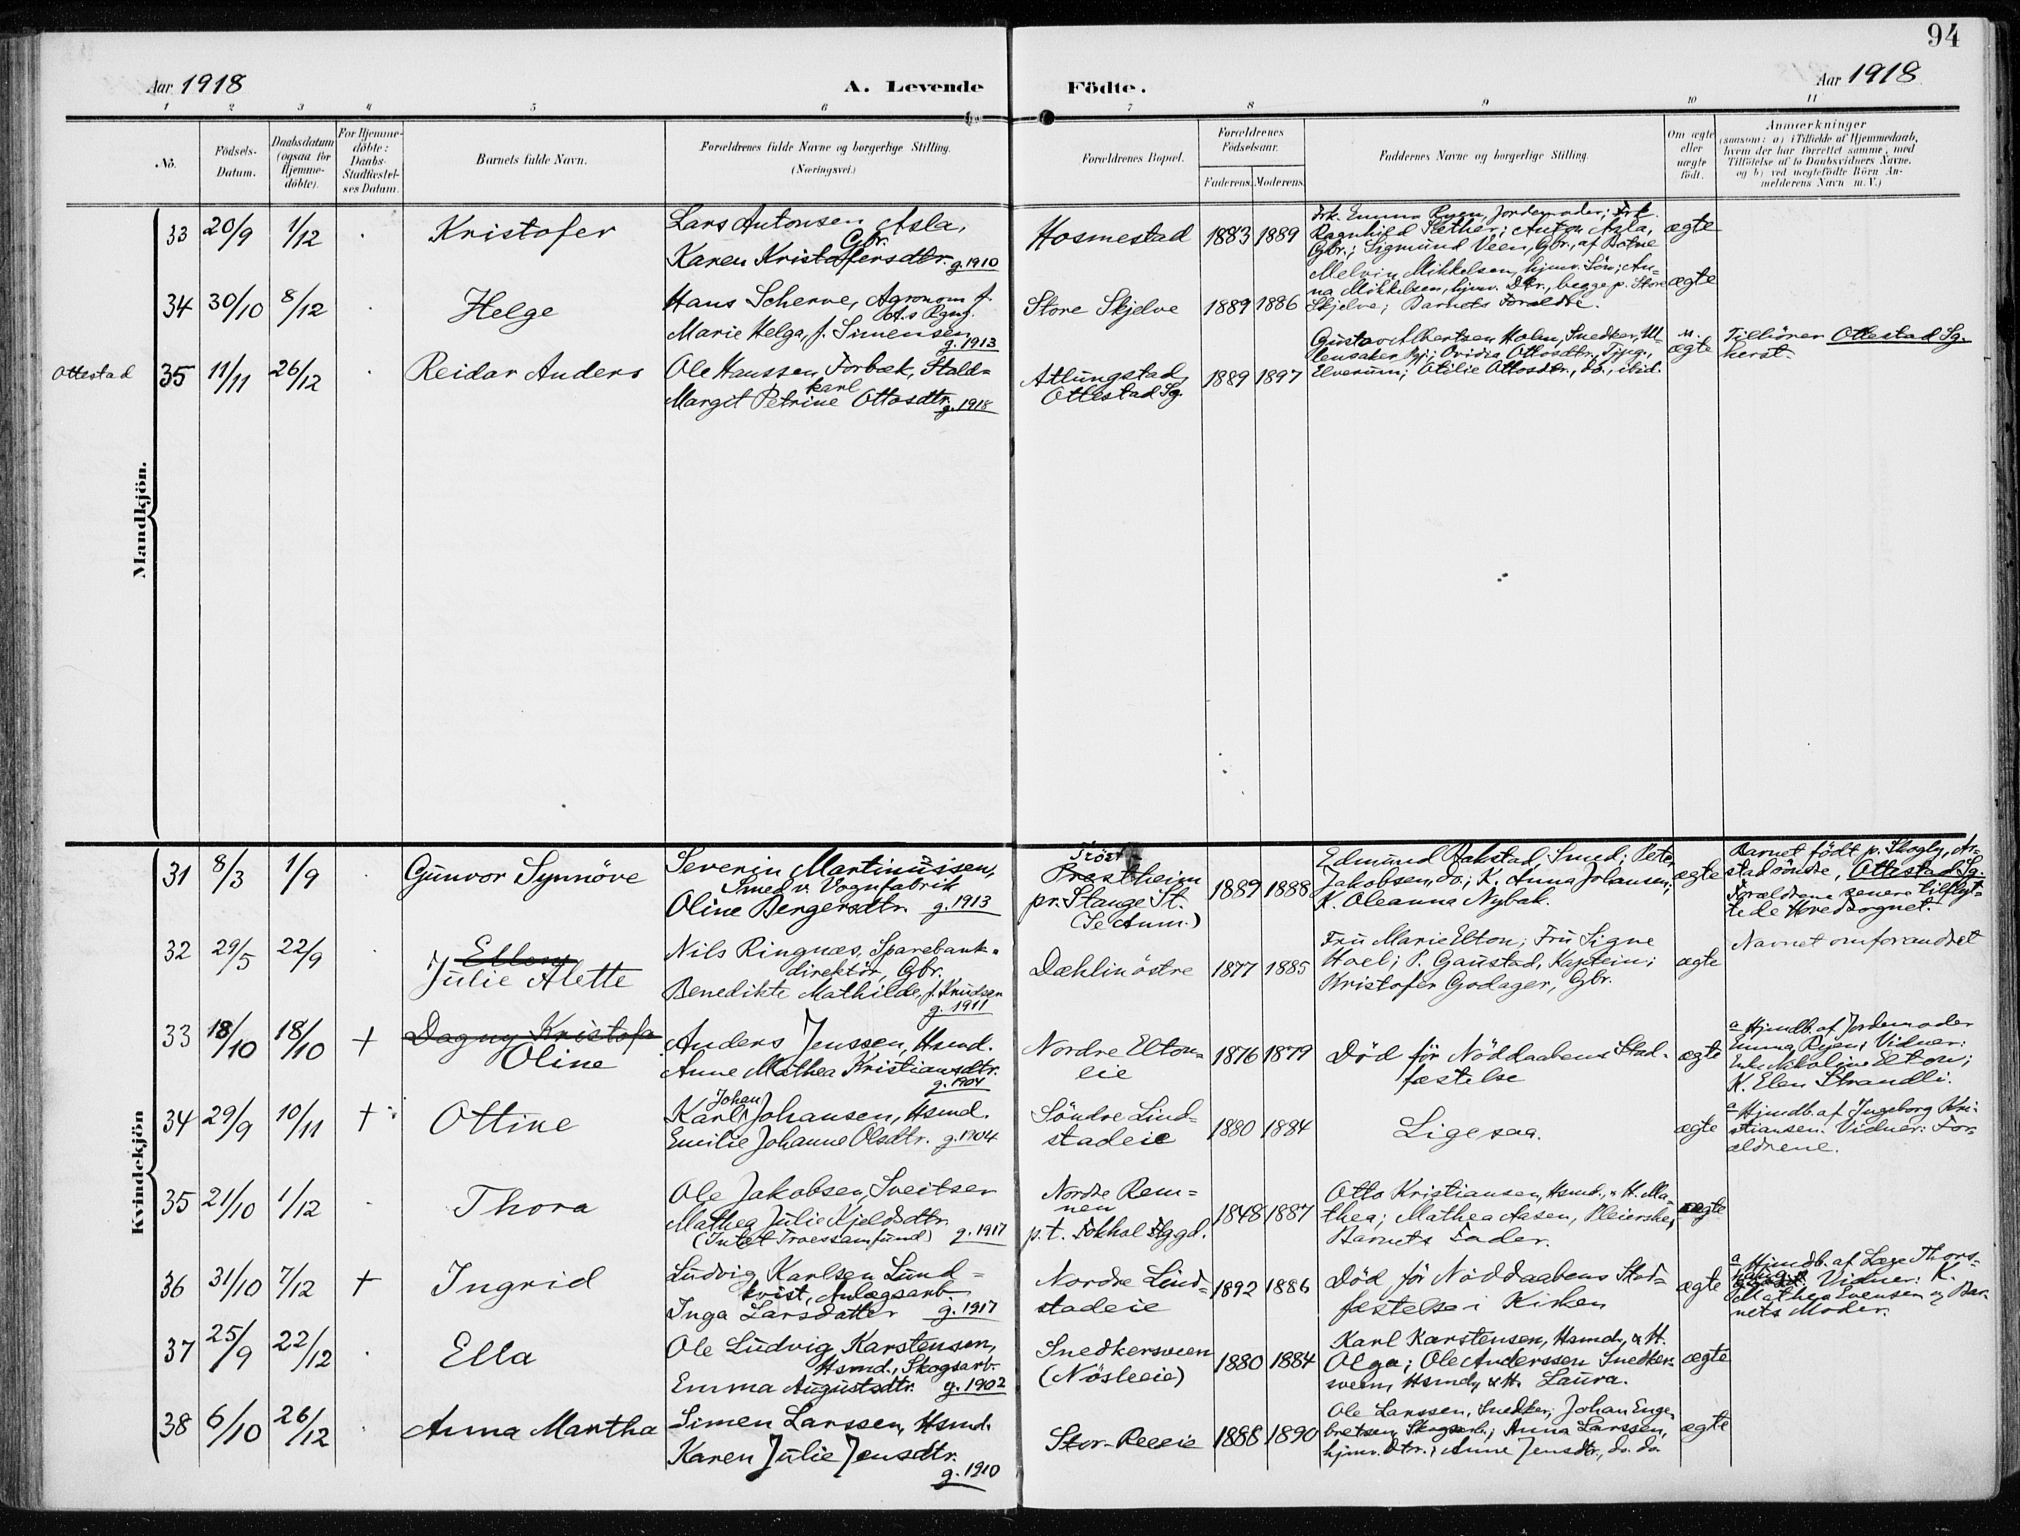 94
Aar 1918
A. Levende Födte.
Aar 1918
1 2 3 4 5 6 7 8 9 10 11
No.
Födsels-
Datum.
Daabsdatum
(ogsaa for
Hjemme-
döbte).
For Hjemme-
döbte:
Daabs-
Stadfæstel-
ses Datum.
Barnets fulde Navn.
Forældrenes fulde Navne og borgerlige Stilling.
(Næringsvei.)
Forældrenes Bopæl.
Forældrenes
Födselsaar.
Faderens. Moderens.
Faddernes Navne og borgerlige Stilling.
Om ægte
eller
uægte
födt.
Anmærkninger
(saasom: a) i Tilfælde af Hjemmedaab,
hvem der har forrettet samme, med
Tilföielse af to Daabsvidners Navne.
og b) ved uægtefödte Börn An-
melderens Navn m. V.)
Mandkjön.
33 20/9 1/12 Kristofer
Lars Antonsen Asla,
Gbr.
Karen Kristofersdtr. g. 1910
Hosmestad 1883 1889
Frk. Emma Ryen, Jordemoder; Frk.
Ragnhild Sæther; Anton Asla,
Gbr.; Sigmund Veen, Gbr., af Botne
ægte
34 30/10 8/12 Helge
Hans Scherve, Agronom f.
Marie Helga, f. Simensen
g. 1913
Store Skjelve 1889 1886
Melvin Mikkelsen, hjmv. Sön; An-
na Mikkelsen, hjmv. Dtr., begge p. Store
Skjelve; Barnets Forældre.
ægte
Ottestad 35 11/11 26/12 Reidar Anders
Ole Hanssen Forbæk, Stald-
karl
Margit Petrine Ottosdtr. g. 1918
Atlungstad,
Ottestad Sg.
1889 1897
Gustav Albertsen Holm, Snedker, Ul-
lensaker; Ovidia Ottosdtr.,
Elverum; Otilie Ottosdtr., do., ibid.
u.
ægte
Tilhörer Ottestad Sg.
herst.
Kvindekjön
31 8/3 1/9 Gunvor Synnöve
Severin Martinussen,
Smed v. Vognfabrik
Oline Bergersdtr. g. 1913
Tröst-
Prestheim
pr. Stange St.
(Se Anm.)
1889 1888
Edmund Bakstad, Smed; Peter
Jakobsen, do; K. Anna Johansen;
K. Oleanna Nybak.
ægte
Barnet födt p. Skogly, Ar-
stad söndre, Ottestad Sg.
Forældrene senere tilflyt-
tede Hvedsognet.
32 29/5 22/9
Ellen
Julie Alette
Nils Ringnæs, Sparebank-
direktör, Gbr.
Benedikte Mathilde, f. Knudsen
g. 1911
Dæhlin östre 1877 1885
Fru Marie Elton; Fru Signe
Hoel; P. Gaustad, Kaptein;
Kristofer Godager, Gbr.
ægte
Navnet omforandret
33 18/10 18/10 +
Dagny Kristofa
Oline
Anders Jenssen, Hsmd.
Anne Mathea Kristiansdtr.
g. 1904
Nordre Elton-
eie
1876 1879
Död för Nöddaabens Stad-
fæstelse
ægte
a Hjmdb. af Jordemoder
Emma Ryen; Vidner:
Enke Nikoline Elton;
K. Elen Strandli.
34 29/9 10/11 + Ottine
Johan
Karl Johansen, Hsmd.
Emilie Johanne Olsdtr. g. 1904
Söndre Lind-
stadeie
1880 1884
Ligesaa.
ægte
a Hjmdb. af Ingeborg Kri-
stiansen. Vidner: For-
ældrene.
35 21/10 1/12 Thora
Ole Jakobsen, Sveitser
Mathea Julie Kjeldsdtr.
(Intet Troessamfund) g. 1917
Nordre Rem-
men
p.t. Fokhol Hggd.
1848 1887
Otto Kristiansen, Hsmd., & H. Ma-
thea; Mathea Aasen, Pleierske;
Barnets Fader.
ægte
36 31/10 7/12 + Ingrid
Ludvig Karlsen Lund-
kvist, Anlægsarb.
Inga Larsdatter g. 1917
Nordre Lind-
stadeie
1892 1886
Död för Nöddaabens Stad-
fæstelse i Kirken
ægte
a Hjmdb. af Læge Thors-
Vidner: K.
Mathea Evensen og Bar-
nets Moder.
37 25/9 22/12 Ella
Ole Ludvig Karstensen,
Hsmd., Skogsarb.
Emma Augustsdtr. g. 1902
Snedkersveen
(Nösleeie)
1880 1884
Karl Karstensen, Hsmd., & H.
Olga; Ole Anderssen Snedker-
sveen, Hsmd., & H. Laura.
ægte
38 6/10 26/12 Anna Martha
Simen Larssen, Hsmd.
Karen Julie Jensdtr.
g. 1910
Stor-Reeeie 1888 1890
Ole Larssen, Snedker; Johan Enge-
bretsen, Skogsarb.; Anna Larssen,
hjmv. Dtr.; Anne Jensdtr., do. do.
ægte